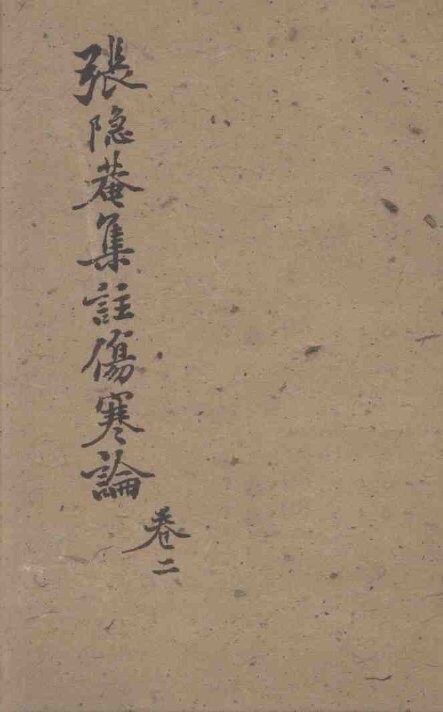 張隐菴集註傷寒論
卷二